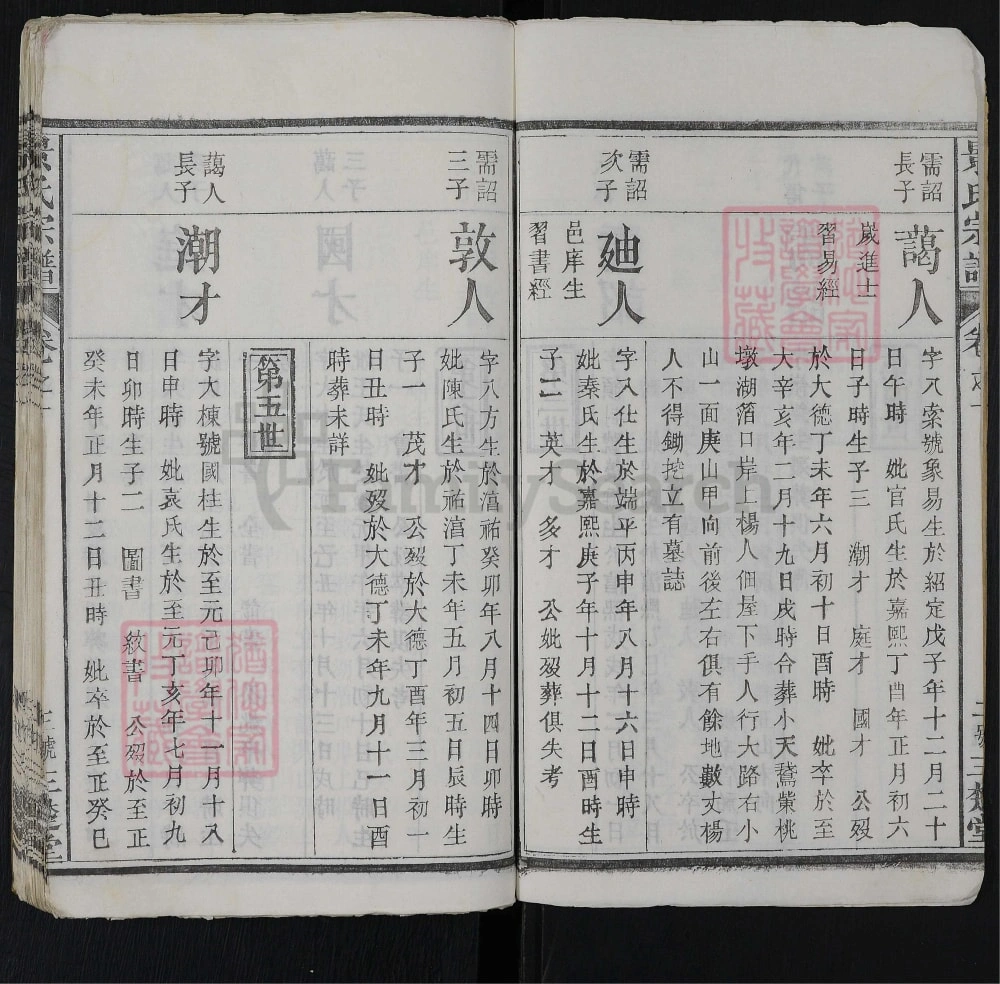 景氏宗譜
卷之一
三樂堂
需詔長子
藹人
歲進士
習易經
字八索號象易生於紹定戊子年十二月二十
日午時 妣官氏生於嘉熙丁酉年正月初六
日子時生子三 潮才 庭才 國才 公歿
於大德丁未年六月初十日酉時 妣卒於至
大辛亥年二月十九日戌時合葬小天鵞縈桃
墩湖箔口岸上楊人佃屋下手人行大路右小
山一面庚山甲向前後左右俱有餘地數丈楊
人不得鋤挖立有墓誌
需詔次子
廸人
邑庠生
習書經
字入仕生於端平丙申年八月十六日申時
妣秦氏生於嘉熙庚子年十月十二日酉時生
子二 英才 多才 公妣歿葬俱失考
需詔三子
敦人
字八方生於湻祐癸卯年八月十四日卯時
妣陳氏生於祐湻丁未年五月初五日辰時生
子一 茂才 公歿於大德丁酉年三月初一
日丑時 妣歿於大德丁未年九月十一日酉
時葬未詳
第五世
藹人長子
潮才
字大棟號國桂生於至元己卯年十一月十八
日申時 妣袁氏生於至元丁亥年七月初九
日卯時生子二 圖書 敘書 公歿於至正
癸未年正月十二日丑時 妣卒於至正癸巳
景氏宗譜
卷之一
三樂堂
FamilySearch